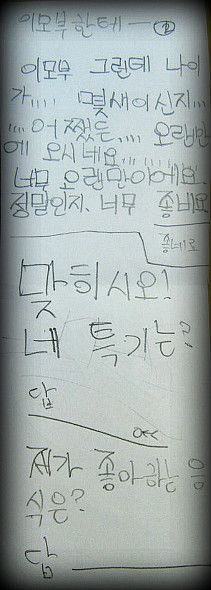 이모부한테 — ②
이모부 그런데 나이
가,,,, 몇새이신지...
....어쨌든,.... 오랜만
에 오시네요.......
너무 오랜만이에요.
정말인지. 너무 좋네요
좋네요
맞히시오!
네 특기는?
답
제가 좋아하는 음
식은?
답